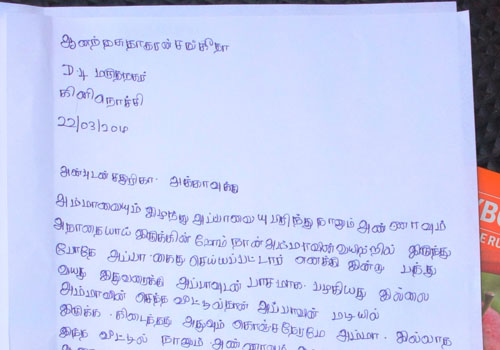 ஆனந்தசுதாகரன் சங்கீதா
D4 மருதநகர்
கிளிநொச்சி
22/03/20
அன்புடன் அக்காவுக்கு
அம்மாவையும் இழந்து அப்பாவையு பிரிந்து நானும் அண்ணாவும்
அநாதையாய் இருக்கின் றோம் நான் அம்மாவின் வயிற்றில் இருந்து
போதே அப்பா கைது செய்யப்பட்டார் எனக்கு இன்று பத்து
வயது இதுவரைக்கு அப்பாவுடன் பாசமாக பழகியது இல்லை
அம்மாவின் செத்த வீட்டில்தான் அப்பாவின் மடியில்
இருக்க கிடைத்தது அதுவும் கொஞ்சநேரமே அம்மா இல்லாத
இந்த வீட்டில் நானும் அண்ணாவும்